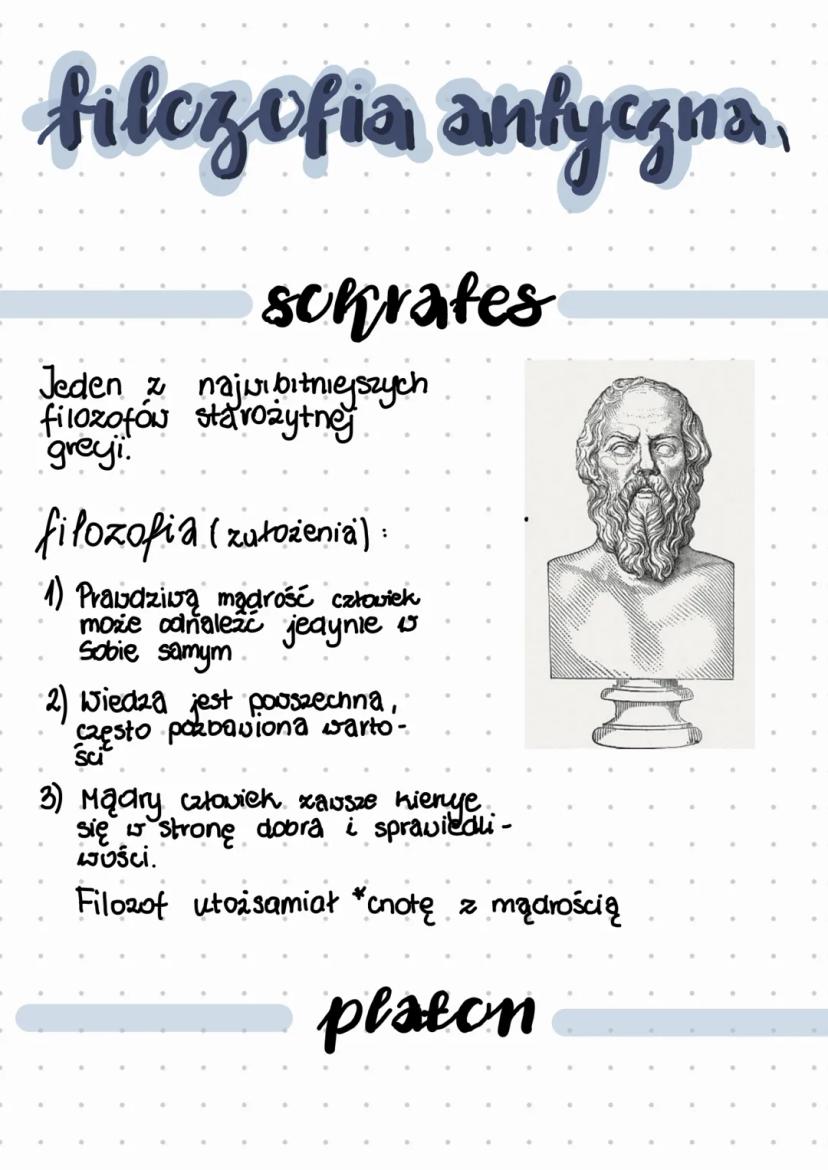 filozofia antyczna
sokrates
Jeden z najwibitniejszych
filozofów starożytnej
grecji.
filozofia (założenia) :
1) Prawdziwą mądrość człowiek
może odnaleźć jedynie w
sobie samym
2) Wiedza jest powszechna,
często pozbawiona warto-
ści
3) Mądry człowiek zawsze kieruje
się w stronę dobra i sprawiedli-
wości.
Filozof utożsamiał *cnotę z mądrością
platon